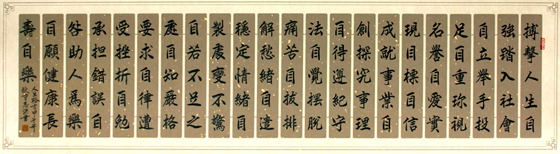 搏擊人生自
強踏入社會
自立舉手投
足自重珍視
名譽自愛實
現目標自信
成就事業自
創探究事理
自得遵紀守
法自覺擺脫
痛苦自拔排
解愁緒自
穩定情緒自
製處變不驚
自若不足之
處自知嚴格
要求自律遭
受挫折自勉
承擔錯誤自
咎助人為樂
自願健康長
壽自樂